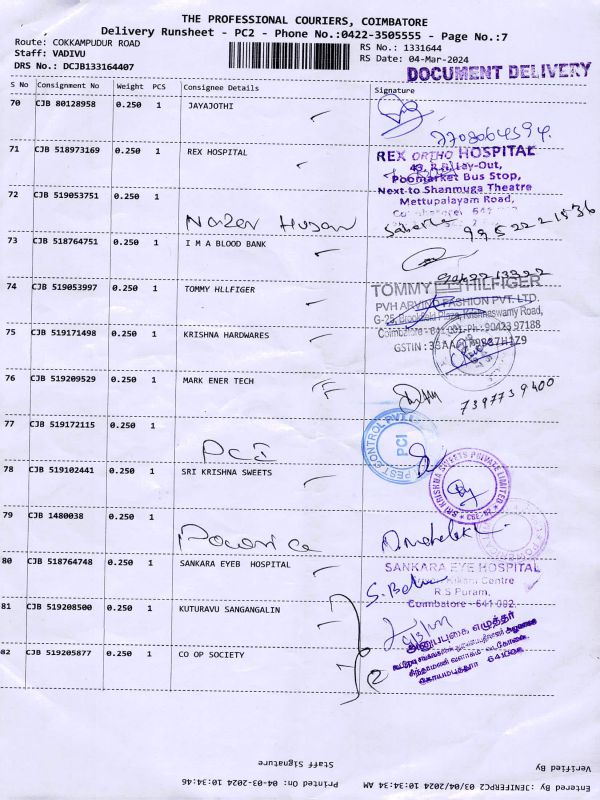 THE PROFESSIONAL COURIERS, COIMBATORE
Delivery Runsheet - PC2 - Phone No.:0422-3505555 - Page No.:7
Route: COKKAMPUDUR ROAD
Staff: VADIVU
DRS No.: DCJB133164407
RS No.: 1331644
RS Date: 04-Mar-2024
DOCUMENT DELIVERY
S No Consignment No Weight PCS Consignee Details Signature
70 CJB 80128958 0.250 1 JAYAJOTHI
7708064594.
71 CJB 518973169 0.250 1 REX HOSPITAL
REX ORTHO HOSPITAL
Poomarket Bus Stop,
Next to Shanmuga Theatre
Mettupalayam Road,
72 CJB 519053751 0.250 1
73 CJB 518764751 0.250 1 I M A BLOOD BANK
74 CJB 519053997 0.250 1 TOMMY HLLFIGER
TOMMY HILFIGER
PVH ARVIND FASHION PVT. LTD.
G-25, Brookfield Plaza, Krishnaswamy Road,
Coimbatore - 641 001. Ph.: 90423 97188
75 CJB 519171498 0.250 1 KRISHNA HARDWARES
76 CJB 519209529 0.250 1 MARK ENER TECH
7397739400
77 CJB 519172115 0.250 1
PCI
PEST CONTROL PVT
PCI
78 CJB 519102441 0.250 1 SRI KRISHNA SWEETS
SRI KRISHNA SWEETS PRIVATE LIMITED
79 CJB 1480038 0.250 1
80 CJB 518764748 0.250 1 SANKARA EYEB HOSPITAL
SANKARA EYE HOSPITAL
Centre
R.S Puram,
Coimbatore - 641 002.
81 CJB 519208500 0.250 1 KUTURAVU SANGANGALIN
82 CJB 519205877 0.250 1 CO OP SOCIETY
Staff Signature
Verified By
Printed On: 04-03-2024 10:34:46
Entered By : JENIFERPC2 03/04/2024 10:34:34 AM